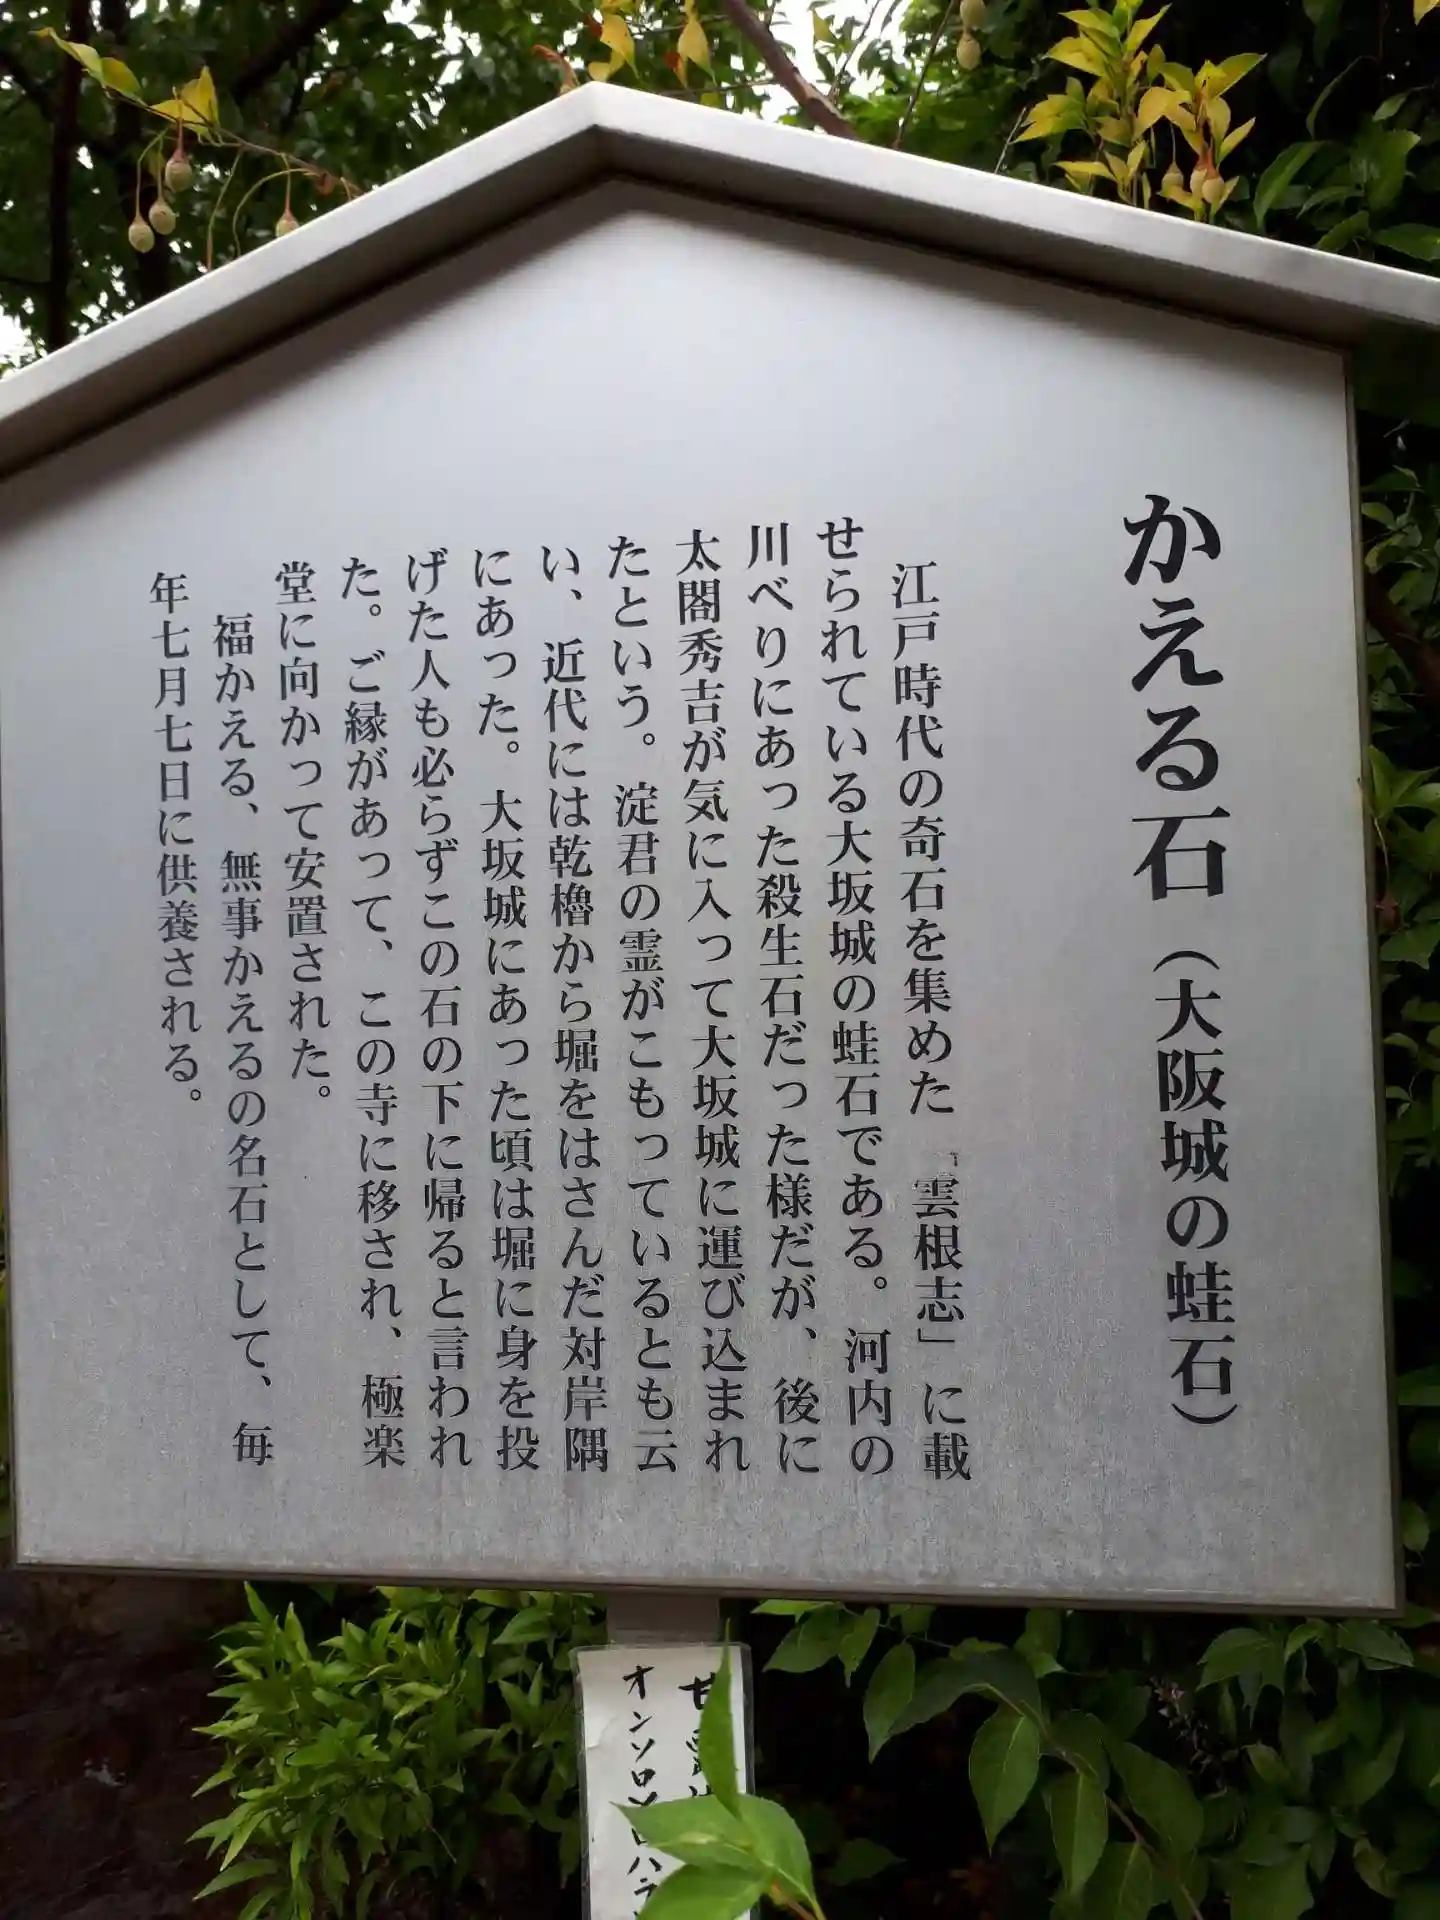 かえる石（大阪城の蛙石）
江戸時代の奇石を集めた「雲根志」に載
せられている大坂城の蛙石である。河内の
川べりにあった殺生石だった様だが、後に
太閤秀吉が気に入って大坂城に運び込まれ
たという。淀君の霊がこもっているとも云
い、近代には乾櫓から堀をはさんだ対岸隅
にあった。大坂城にあった頃は堀に身を投
げた人も必らずこの石の下に帰ると言われ
た。ご縁があって、この寺に移され、極楽
堂に向かって安置された。
福かえる、無事かえるの名石として、毎
年七月七日に供養される。
オンソロソロハラ